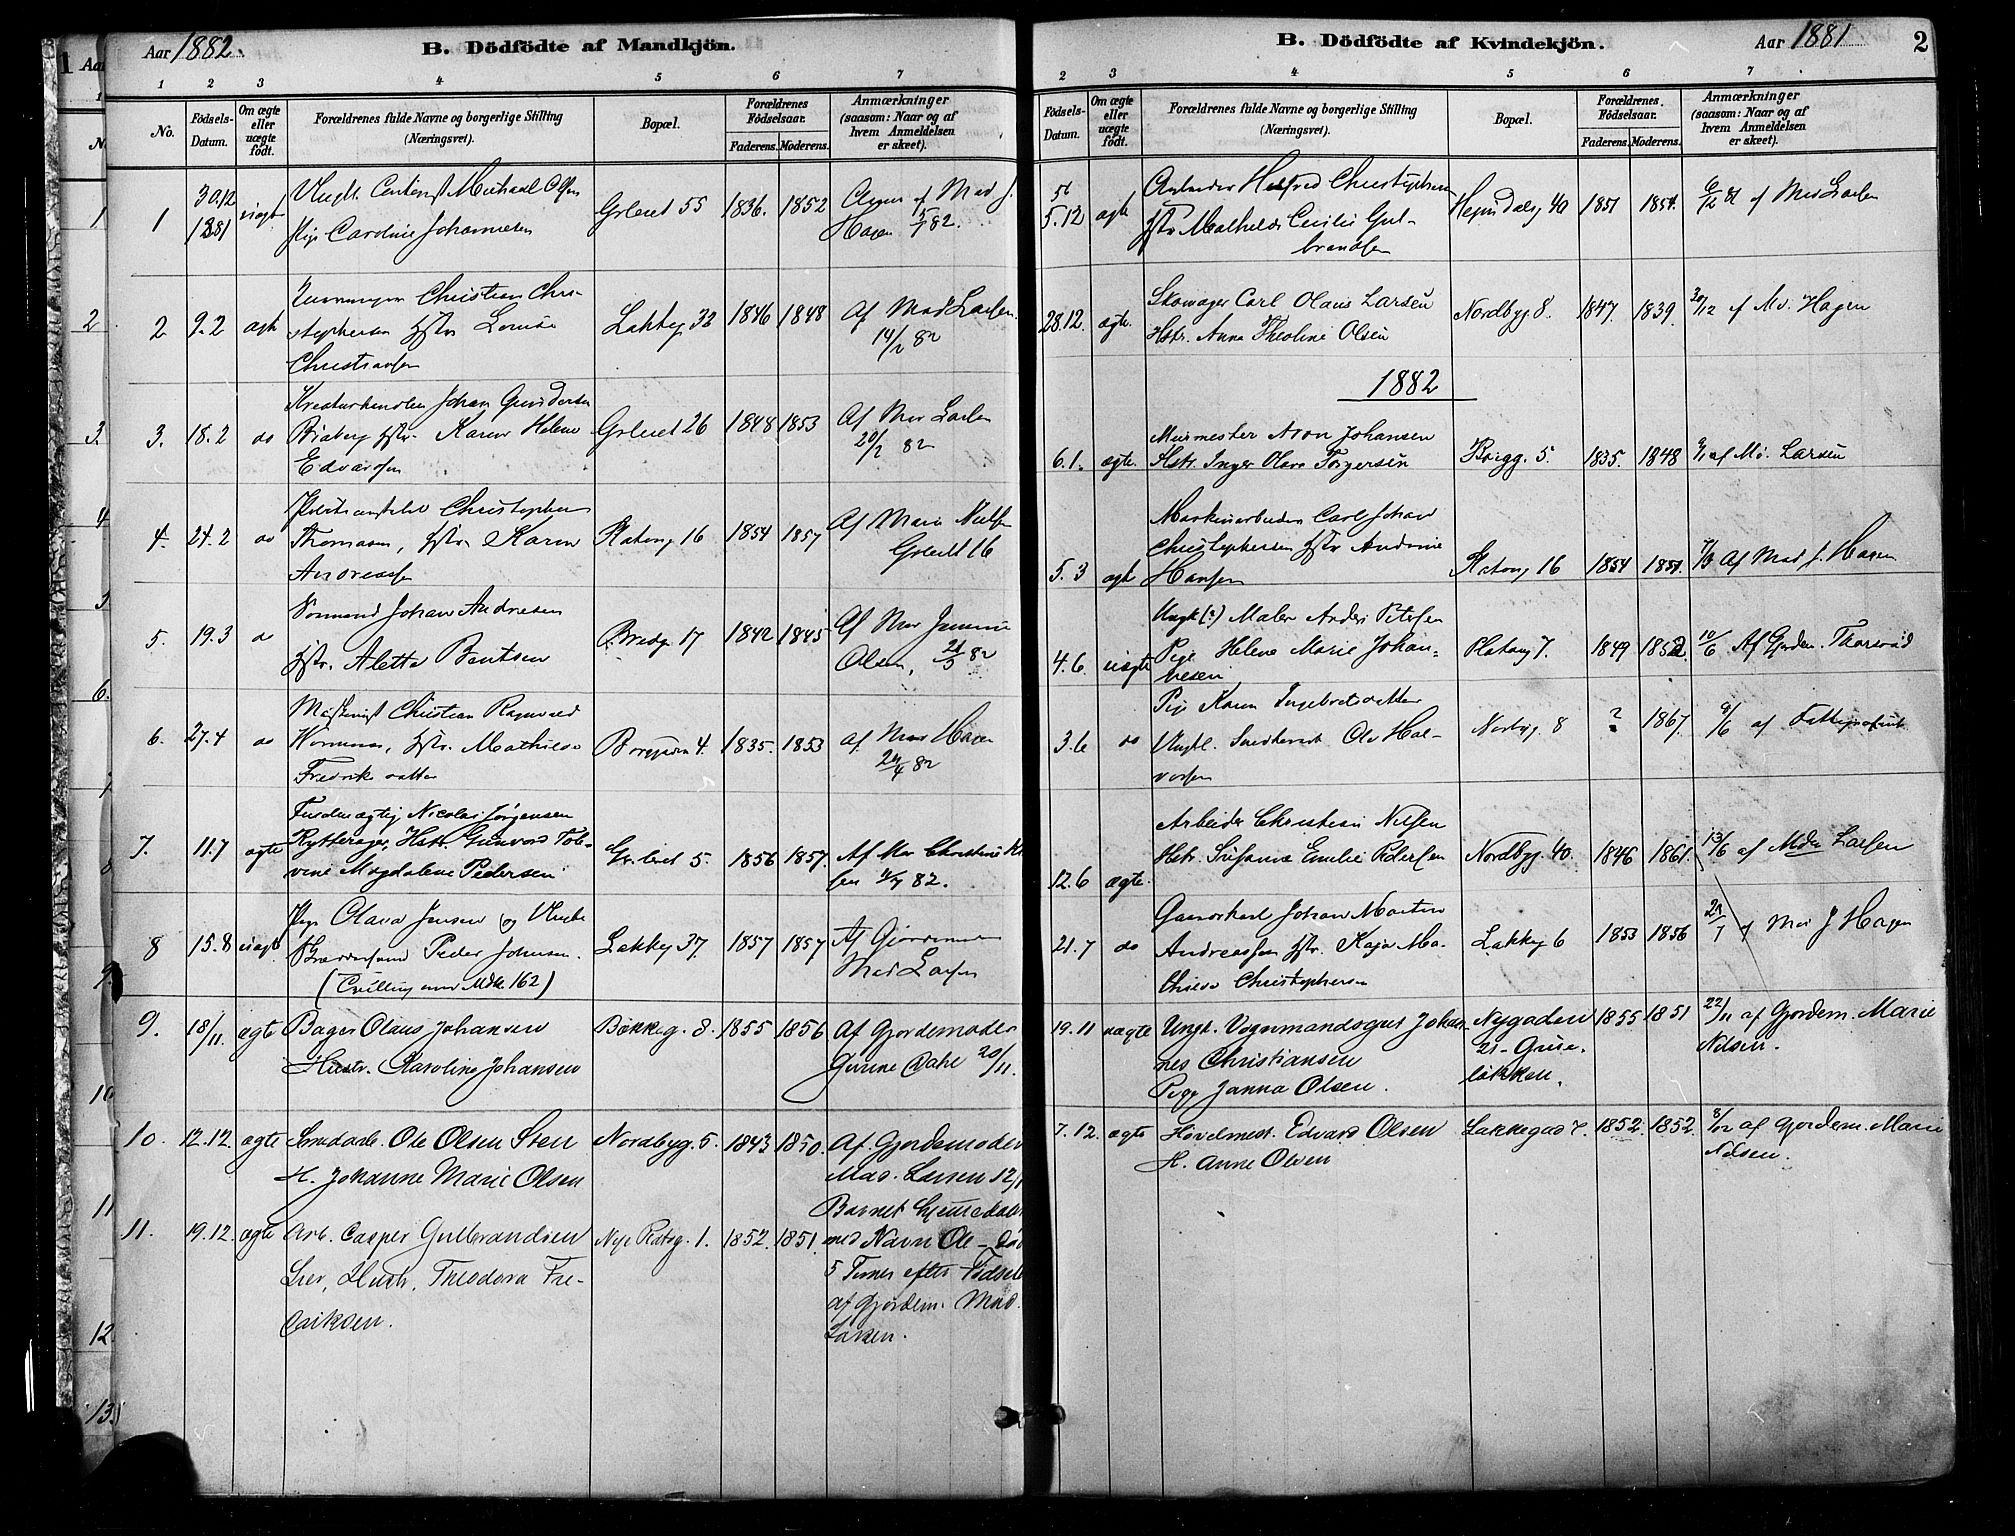 Aar 1882.
B. Dödfödte af Mandkjön.
1 2 3 4 5 6 7
No.
Födsels-Datum.
Om ægte eller uægte födt.
Forældrenes fulde Navne og borgerlige Stilling (Næringsvei).
Bopæl.
Forældrenes Födselsaar.
Faderens. Moderens.
Anmærkninger (saasom: Naar og af hvem Anmeldelsen er skeet).
1 30.12 1881 uægt Michael Olsen Grleret 55 1836. 1852 af Mad J.
Pige Caroline Johannesen Hagen 5/1 82.
2 9.2 ægt Christian Chri-
stophersen Hstr. Lovise Lakkeg 32 1846 1848 Af Mad Larsen
Christiansen 14/2 82
3. 18.2 do Kreaturhandler Johan Gundersen
Hstr. Karen Helene Grleret 26 1848 1853 Af Mad Larsen
Edvardsen 20/2 82
4. 24.2 do Christophersen
Thomasen, Hstr. Karen Platoug 16 1854 1857 Af Marie Nielsen
Andreassen Grleret 16
5. 19.3 do Vognmand Johan Andresen
Hstr. Aletta Bentsen Bredg 17 1842 1845 Af Mad
Olsen, 82
6. 27.4 do Maskinist Christian Ragnvald
Hstr. Mathilde Borggaden 4. 1835. 1853 af Mad Hagen
Fredriksdatter 29/4 82
7. 11.7 ægte Nicolai Jørgensen
Rytterager, Hstr. Gunvord Tobi-
vine Magdalene Pedersen Grleret 5. 1856 1857. Af Mad Christine
11/7 82.
8 15.8 uægt Pige Olava Jensen og Ungk.
Peder Johnsen. Lakkeg 37 1857 1857 Af Gjordemoder
(Tvilling med Mdk 162) Mad Larsen
9. 18/11 ægte Bager Olaus Johansen Bakkeg. 8. 1855 1856 Af Gjordemoder
Hustr. Karoline Johansen Gurine Dahl 20/11.
10. 12.12. ægte Smedarb. Ole Olsen Sten Nordbyg. 5. 1843 1850. Af Gjordemoder
H. Johanne Marie Olsen Mad. Larsen 12/1
11. 19.12. ægte Arb. Casper Gulbrandsen Nye Platog. 1. 1852. 1851. Barnet hjemmedøbt
Lier, Hustr. Theodora Fre- med Navn Ole - død
driksen. 5 Timer efter Fødselen
af Gjordem. Mad.
Larsen.
B. Dödfödte af Kvindekjön.
Aar 1881
2
2 3 4 5 6 7
Födsels-Datum.
Om ægte eller uægte födt.
Forældrenes fulde Navne og borgerlige Stilling (Næringsvei).
Bopæl.
Forældrenes Födselsaar.
Faderens. Moderens.
Anmærkninger (saasom: Naar og af hvem Anmeldelsen er skeet).
5.12 ægte Arbeider Helfred Christophersen Heimdalsg 40 1851 1854. 6/12 81 af Mad Larsen
Hstr. Mathilde Cecilie Gul-
brandsen
28.12. ægte. Skomager Carl Olaus Larsen Nordbyg 8. 1847. 1839. 30/12 af Md. Hagen
Hstr. Anna Theoline Olsen
1882
Murmester Aron Johansen
6.1. ægte. Hstr. Inger Olava Torgersen Borgg. 5. 1835. 1848 9/1 af Md. Larsen
Maskinarbeider Carl Johan
Christophersen Hstr. Andrine
5.3 ægte Hansen Platoug 16 1854 1851. 7/3 Af Mad J. Hagen
Ungk (?) Maler Anders Petersen
4.6. uægte Pige Helene Marie Johan- Platoug 7. 1849 1852. 10/6 Af Gjordem. Thorsrud
nesen
Pige Karen Ingebretsdatter
3.6 do Ungk. Ole Hal- Nordbyg. 8 ? 1867. 9/6 af
vorsen
Arbeider Christian Nilsen
Hstr. Susanne Emilie Pedersen Nordbyg. 40. 1846 1861. 13/6 af Mdm Larsen
12.6 ægte.
Gaardskarl Johan Martin
21.7 do Andreassen Hstr. Kaja Ma- Lakkeg 6 1853 1856 21/7 af Mad J Hagen
thilde Christophersen
19.11 uægte Ungk. Vognmandsgut Johan- Nygaden 1855 1851 22/11 af Gjordem. Marie
nes Christiansen 21- Grüner- Nilsen.
Pige Janna Olsen. løkken.
7.12. ægte Høvelmest. Edvard Olsen Lakkegad 7. 1852. 1852. 8/12 af Gjordem. Marie
H. Anne Olsen Nilsen.